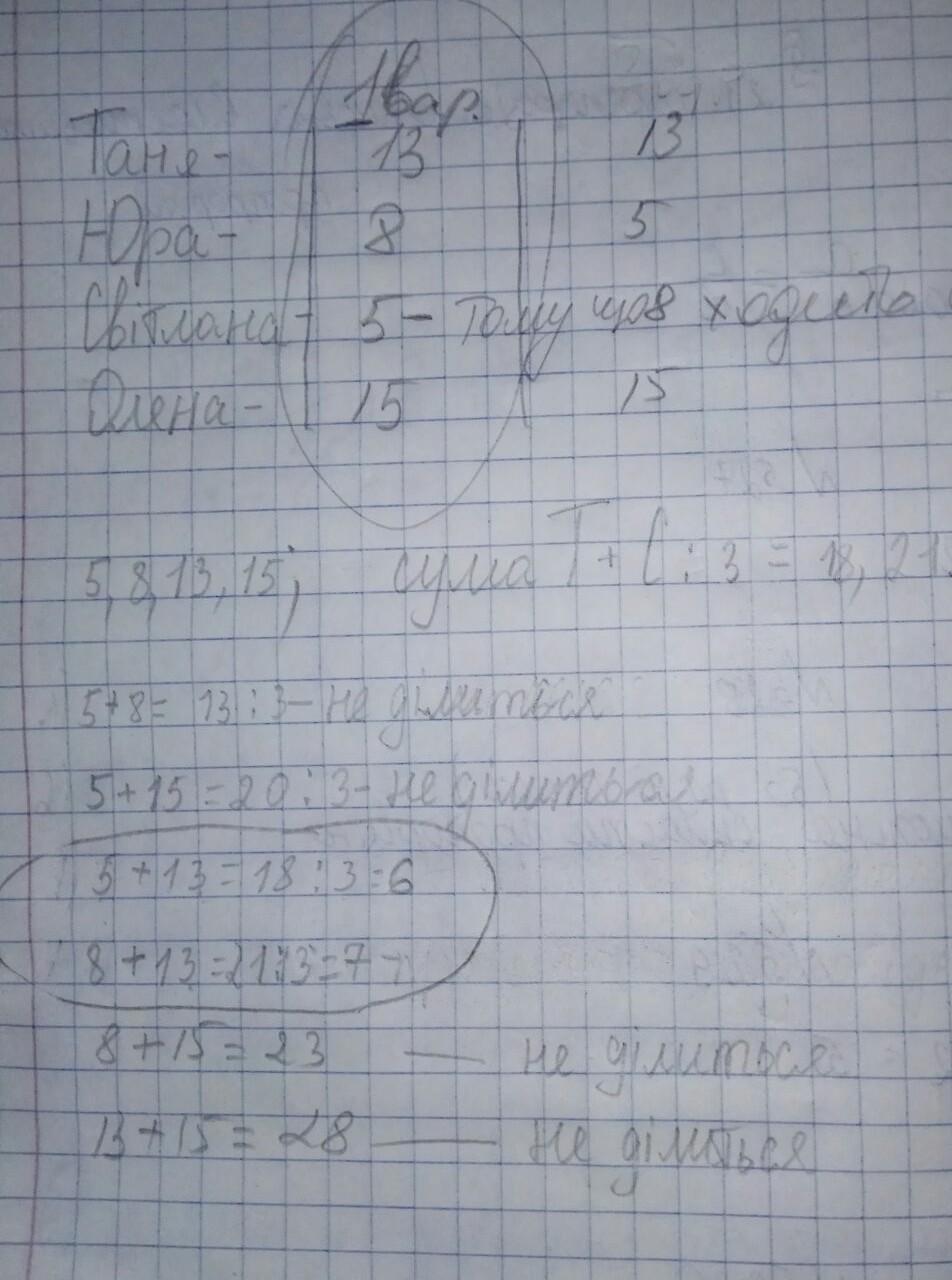 1 вар.
Таня - 13 13
Юра - 8 5
Світлана - 5 - тому що 8 ходить
Олена - 15 15
5, 8, 13, 15; сума Т + С : 3 = 18, 21
5+8= 13 : 3 - не ділиться
5 + 15 = 20 : 3 - не ділиться
5 + 13 = 18 : 3 = 6
8 + 13 = 21:3 = 7
8 + 15 = 23 — не ділиться
13 + 15 = 28 — не ділиться